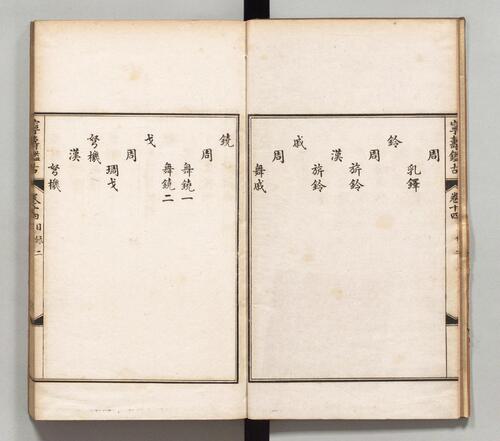 寧壽鑑古
卷十四
周
乳鐸
鈴
周
旂鈴
漢
旂鈴
戚
周
舞戚
鐃
周
舞鐃一
舞鐃二
戈
周
琱戈
弩機
漢
弩機
寧壽鑑古
卷十四
目錄二